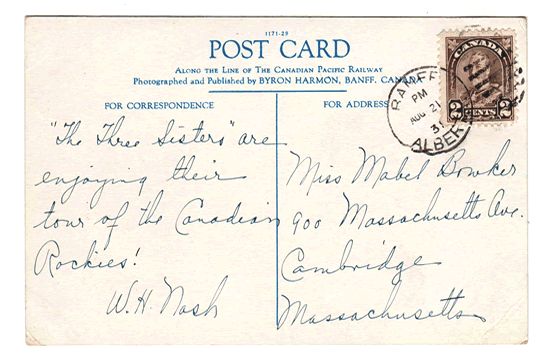 1171-29
POST CARD
ALONG THE LINE OF THE CANADIAN PACIFIC RAILWAY
Photographed and Published by BYRON HARMON, BANFF, CANADA
FOR CORRESPONDENCE
FOR ADDRESS
CANADA
2 CENTS 2
BANFF
PM
AUG 21
ALBERTA
"The Three Sisters" are
enjoying their
tour of the Canadian
Rockies!
W.H. Nash
Miss Mabel Bowker
900 Massachusetts Ave.
Cambridge
Massachusetts